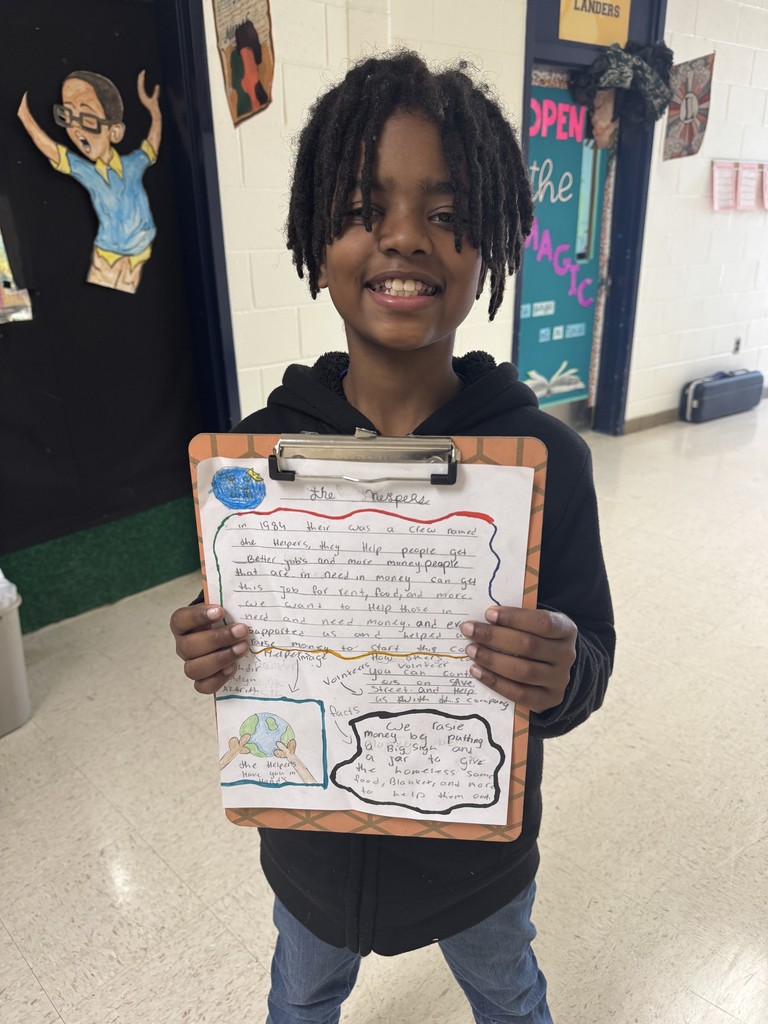 LANDERS
OPEN
the
MAGIC
the Helpers
in 1984 their was a crew named
the Helpers, they Help people get
Better job's and more money people
that are in need in money can get
this job for rent, food, and more.
we want to Help those in
need and need money. and
supported us and helped
raise money to start this
Helper image
Volunteers
Volunteer
you can
on SAVE
Street. and Help
us with this company
facts
the Helpers
Have you in
Hands
We rasie
money by putting
a Big sign and
a jar to give
the homeless some
food, Blanket, and more
to help them out.